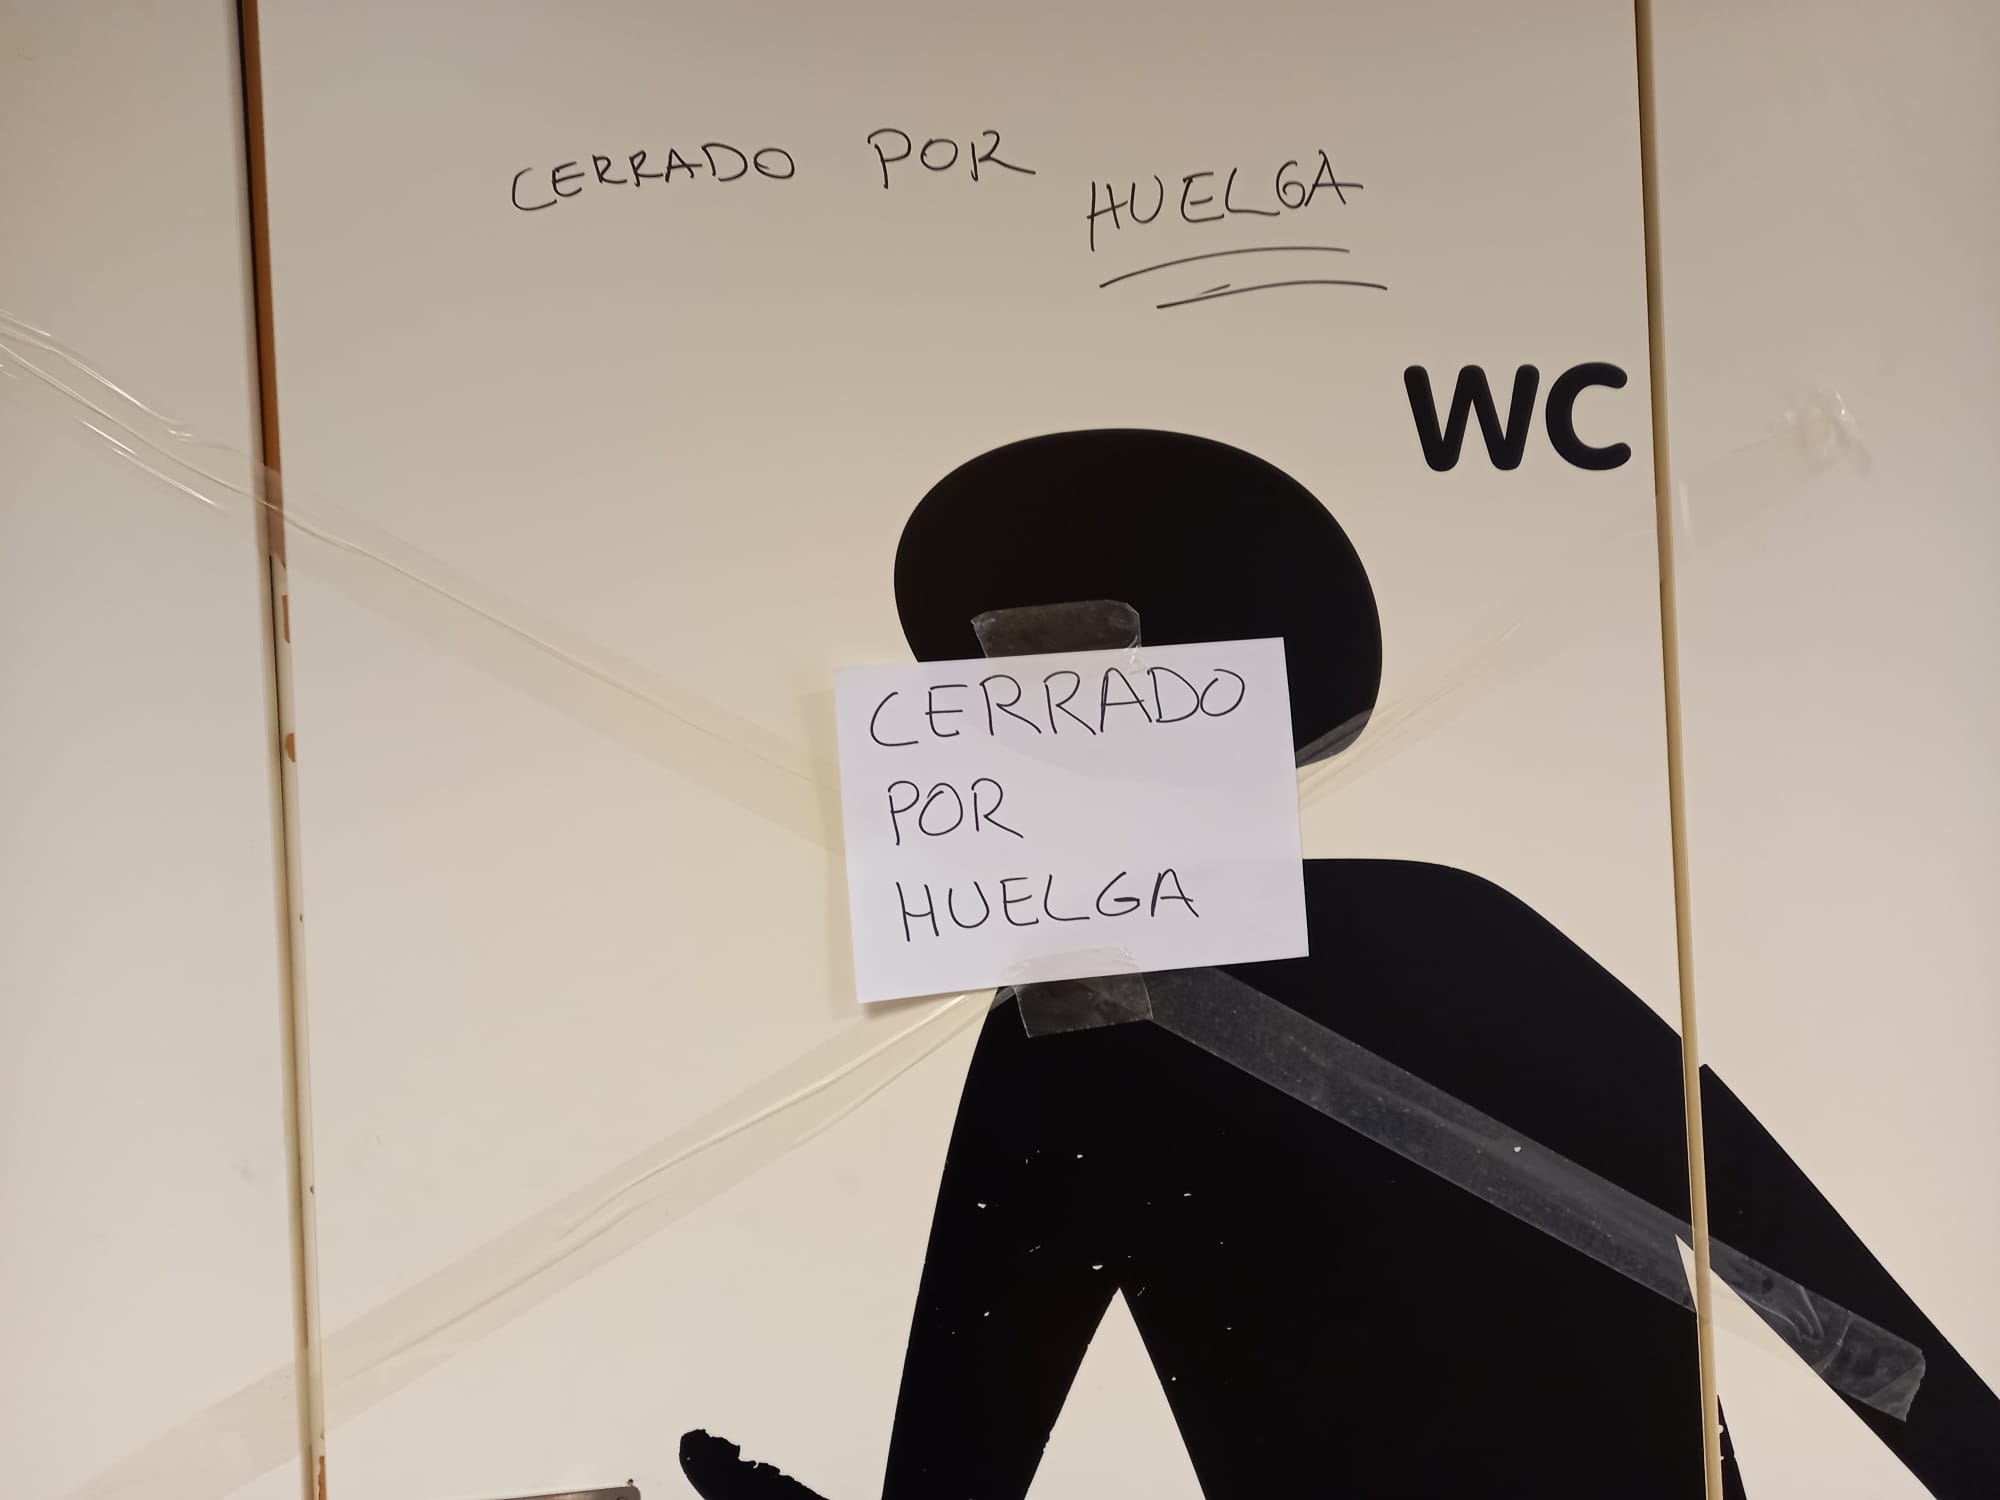 CERRADO POR HUELGA
WC
CERRADO
POR
HUELGA